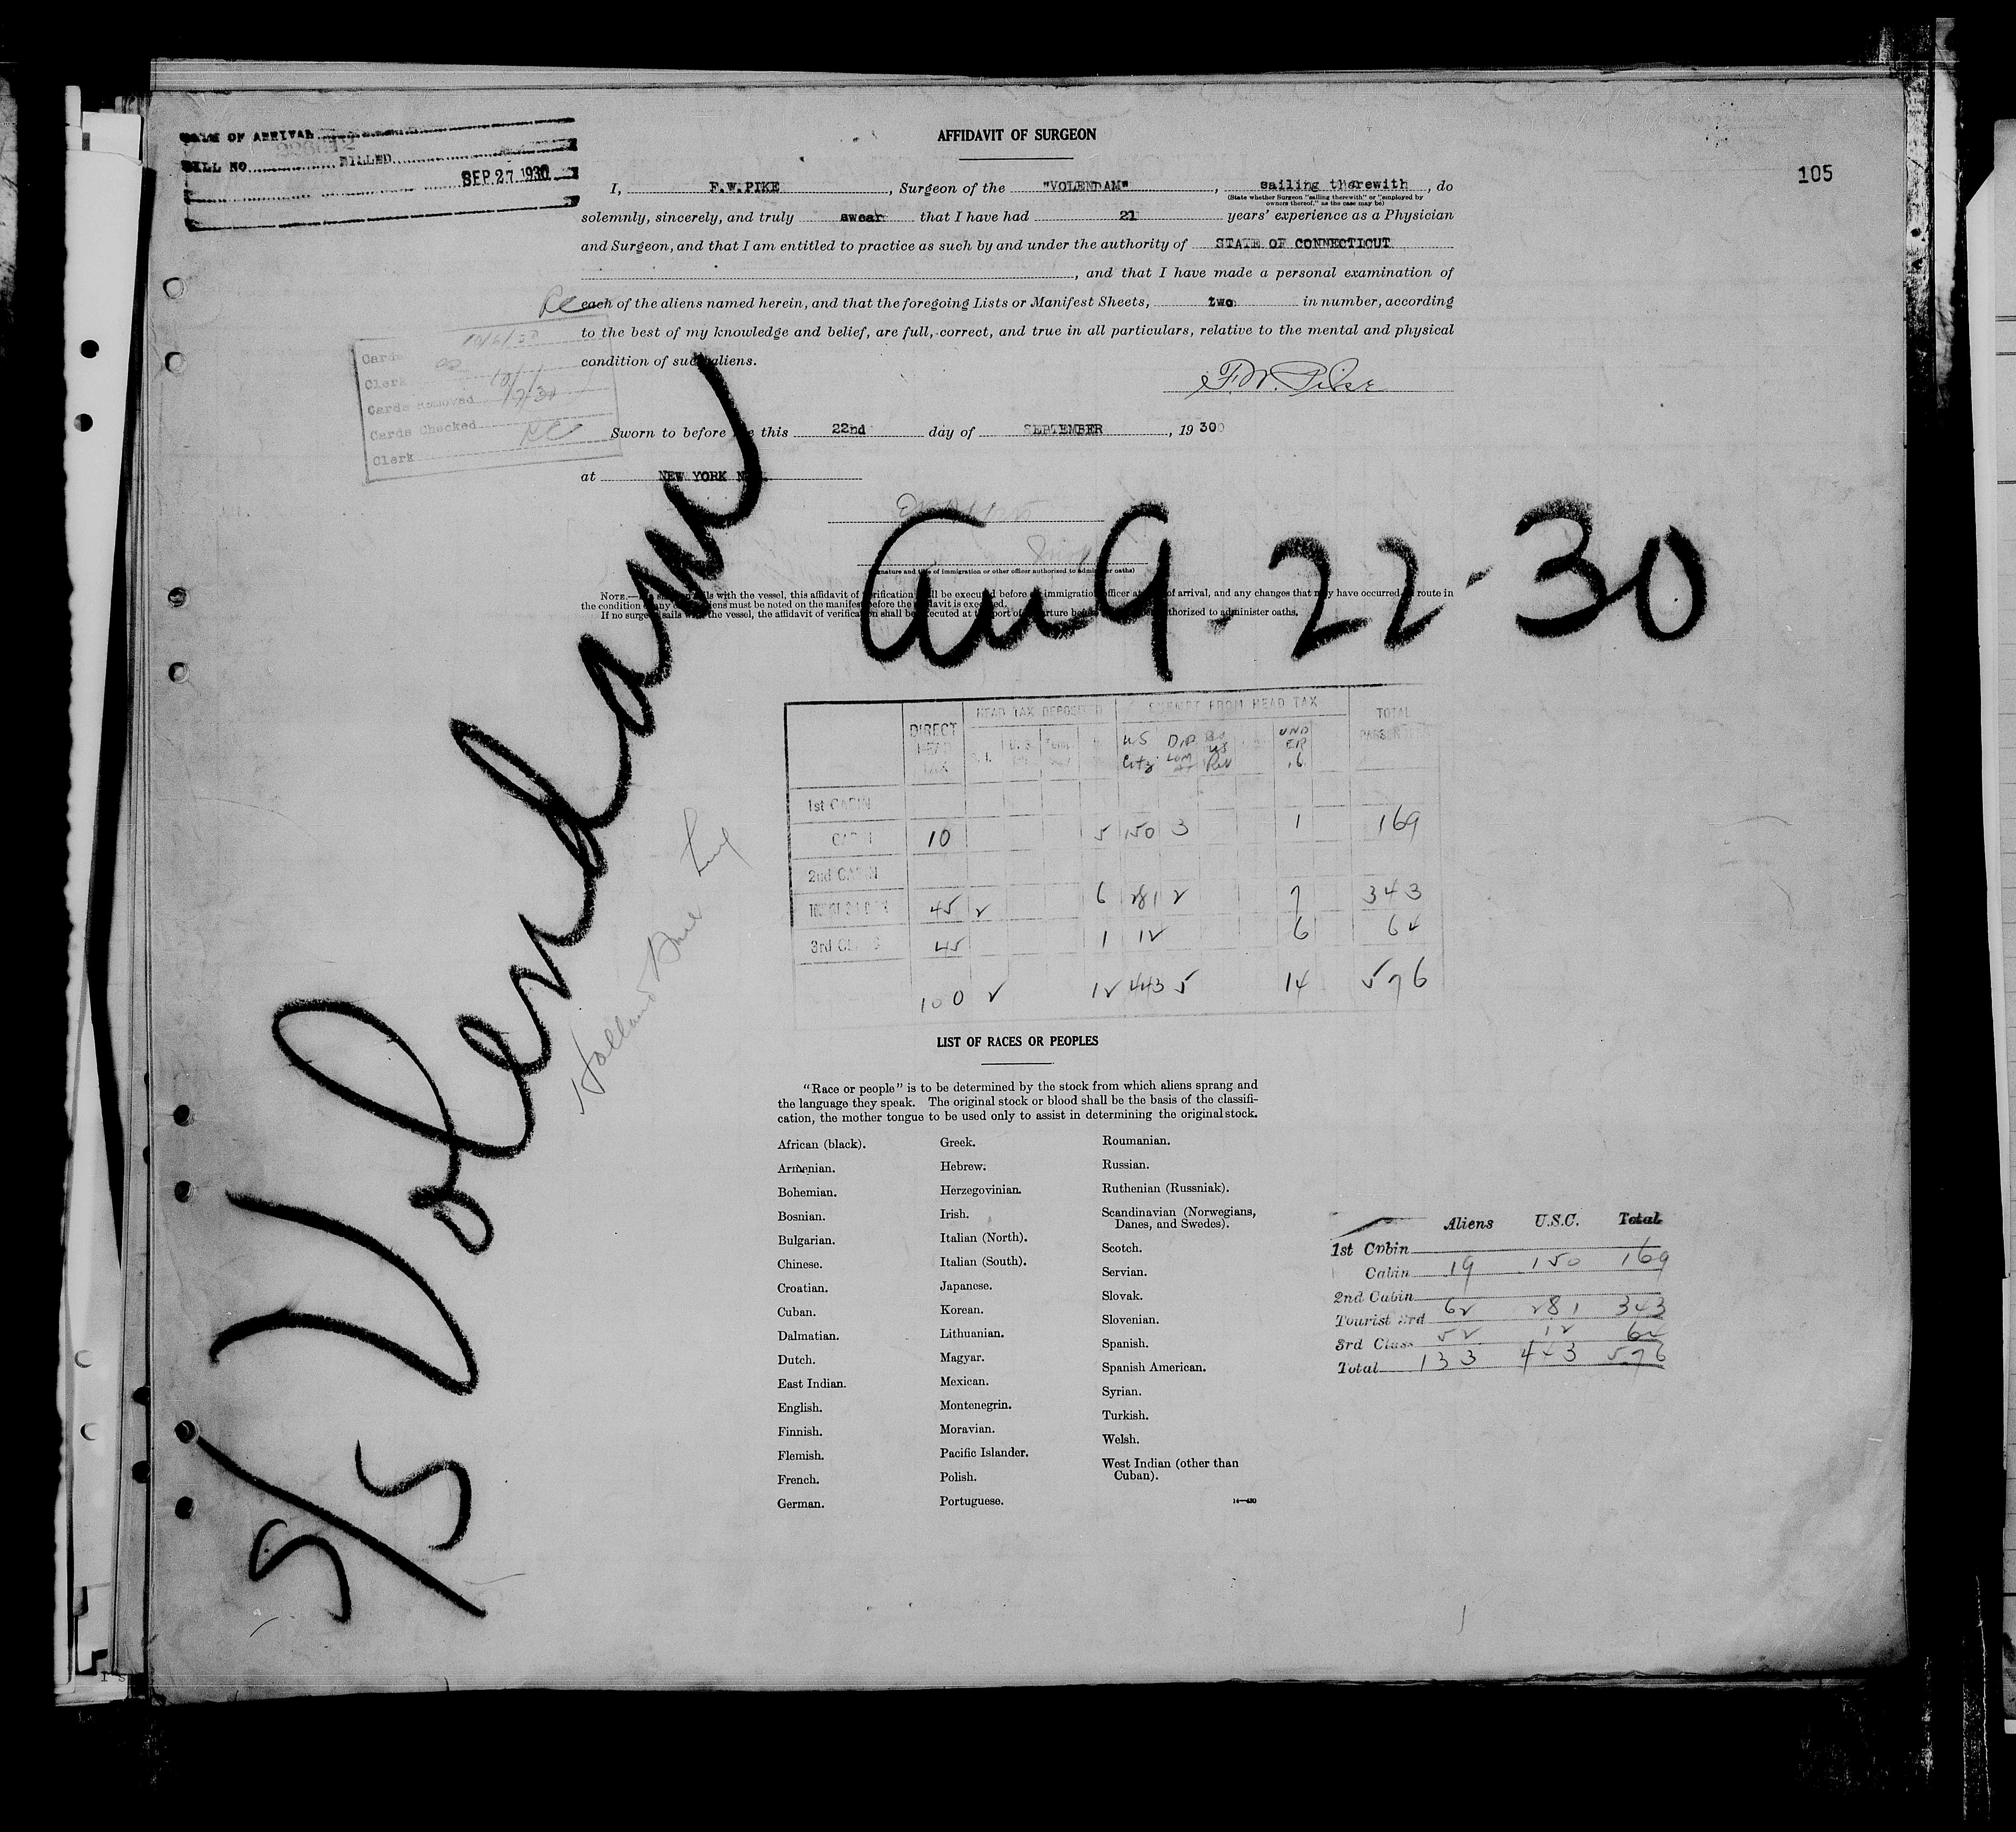 DATE OF ARRIVAL
BILL NO. BILLED
SEP 27 1930
105
AFFIDAVIT OF SURGEON
I, F.W.PIKE, Surgeon of the "VOLENDAM", sailing therewith, do
(State whether Surgeon "sailing therewith" or "employed by
owners thereof," as the case may be)
solemnly, sincerely, and truly swear that I have had 21 years' experience as a Physician
and Surgeon, and that I am entitled to practice as such by and under the authority of STATE OF CONNECTICUT
, and that I have made a personal examination of
each of the aliens named herein, and that the foregoing Lists or Manifest Sheets, two in number, according
to the best of my knowledge and belief, are full, correct, and true in all particulars, relative to the mental and physical
condition of such aliens.
F.W. Pike
Cards 10/6/30
Clerk
Cards Removed
Cards Checked
Clerk
Sworn to before me this 22nd day of SEPTEMBER, 1930
at NEW YORK
Aug-22-30
(Signature and title of immigration or other officer authorized to administer oaths)
NOTE.—If surgeon sails with the vessel, this affidavit of verification shall be executed before an immigration officer at port of arrival, and any changes that may have occurred en route in
the condition of any of the aliens must be noted on the manifest before the affidavit is executed.
If no surgeon sails with the vessel, the affidavit of verification shall be executed at the port of departure before authorized to administer oaths.
S/S Volendam
Holland Ame Line
DIRECT HEAD TAX HEAD TAX DEPOSITED EXEMPT FROM HEAD TAX TOTAL PASSENGERS
US Citz DIP LOM AT UND ER 16
1st CABIN
CABIN 10 5 150 3 1 169
2nd CABIN
TOURIST 3rd CABIN 45 2 6 281 2 7 343
3rd CLASS 45 1 12 6 64
100 2 12 443 5 14 576
LIST OF RACES OR PEOPLES
"Race or people" is to be determined by the stock from which aliens sprang and
the language they speak. The original stock or blood shall be the basis of the classifi-
cation, the mother tongue to be used only to assist in determining the original stock.
African (black).
Armenian.
Bohemian.
Bosnian.
Bulgarian.
Chinese.
Croatian.
Cuban.
Dalmatian.
Dutch.
East Indian.
English.
Finnish.
Flemish.
French.
German.
Greek.
Hebrew.
Herzegovinian.
Irish.
Italian (North).
Italian (South).
Japanese.
Korean.
Lithuanian.
Magyar.
Mexican.
Montenegrin.
Moravian.
Pacific Islander.
Polish.
Portuguese.
Roumanian.
Russian.
Ruthenian (Russniak).
Scandinavian (Norwegians,
Danes, and Swedes).
Scotch.
Servian.
Slovak.
Slovenian.
Spanish.
Spanish American.
Syrian.
Turkish.
Welsh.
West Indian (other than
Cuban).
14—430
Aliens U.S.C. Total
1st Cabin
Cabin 19 150 169
2nd Cabin
Tourist 3rd 62 281 343
3rd Class 52 12 64
Total 133 443 576